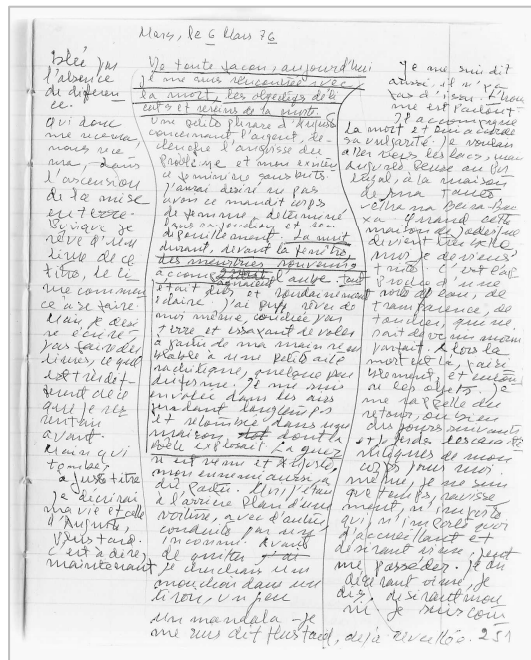 Mons, le 6 Mars 76
blée par
l'absence
de différen
ce.
Qui donc
me recevra,
nous rece
vra, dans
l'ascension
de la mise
en texte.
Puisque je
rêve d'un
livre de ce
titre, le li
vre commen
ce à se faire.
Mais je dési
re écrire,
pas faire des
livres, ce qui
est très dif-
férent de ce
que je res
sentais
avant.
Main qui
tombe,
à juste titre
Je décrirai
ma vie et celle
d'Augusto,
plus tard.
C'est à dire,
maintenant
De toute façon, aujourd'hui
je me suis rencontrée avec
la mort, les objectifs déli
cats et sereins de la mort.
Une petite phrase d'Augusto
concernant l'argent, dé-
clenche l'angoisse du
Problème et mon existen
ce féminine sans buts.
J'aurai désiré ne pas
avoir ce maudit corps
de femme, déterminé
dépouillement. La nuit
durant, devant la fenêtre,
des meurtres nouveaux
accompagnaient l'aube. Tout
était dit, et fondamentalement
clair. J'ai puis rêvé de
moi même, couchée par
terre et essayant de voler
à partir de ma main sem
blable à une petite aile
rachitique, quelque peu
difforme. Je me suis
envolée dans les airs
pendant longtemps
et retombée dans une
maison dont la
porte explosait. La guer
re est venue et
mon ennemi aussi a
dû partir. Moi j'étais
à l'arrière plan d'une
voiture, avec d'autres
conduite par une
inconnue. Avant
de quitter
je cherchais un
mouchoir dans un
tiroir, un peu
un mandala - Je
me suis dit plus tard, déjà réveillée. 251
Je me suis dit
aussi, il n'y a
pas d'issue. L'ennui
me est partout.
Il accompagne
la mort et lui accorde
sa vulgarité. Je voulais
aller vers les lacs, mais
aujourd'hui pense au Por
tugal, à la maison
de ma tante
Quand cette
maison de Jodoigne
devient très belle
moi je deviens
triste. C'est l'ap
proche d'une
voie d'eau, de
transparence, de
touches, qui ne
sait devenir moins
parfait. Alors la
mort est là, paisi
blement, et entou
re les objets. Je
me rappelle du
retour, ou bien
des jours suivants
et perdre les caracté
ristiques de mon
corps pour moi
même, je ne suis
que temps, ravisse
ment, n'importe
qui, n'importe quoi
d'accueillant et
désirant vivre, peut
me posséder. Je dis
désirant vivre, je
dis, désirant mou
rir. Je suis com